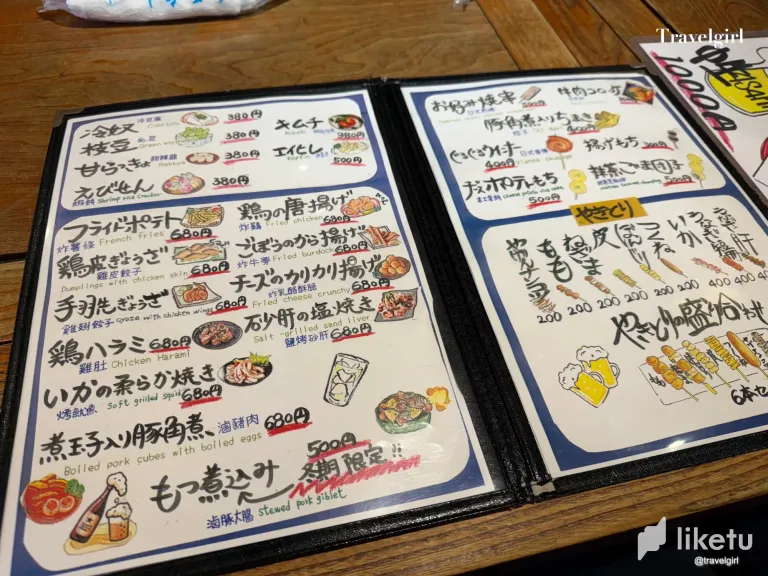 Travelgirl
冷奴 冷豆腐 Cold tofu 380円
枝豆 毛豆 380円
甘らっきょ 甜辣韮 Rakkyo 380円
えびせん 蝦餅 Shrimp rice cracker 380円
キムチ 380円
エイヒレ 500円
フライドポテト 680円
炸薯條 French fries
鶏皮ぎょうざ 680円
雞皮餃子
Dumplings with chicken skin
手羽先ぎょうざ 680円
雞翅餃子 Gyoza with chicken wings
鶏ハラミ 680円
雞肚 Chicken Harami
いかの柔らか焼き
烤魷魚 Soft grilled squid 680円
煮玉子入り豚角煮 滷豬肉 680円
Boiled pork cubes with boiled eggs
もつ煮込み 500円 冬期限定!!
滷豚大腸 stewed pork giblet
鶏の唐揚げ
炸鷄 Fried chicken 680円
ごぼうのから揚げ
炸牛蒡 Fried burdock 680円
チーズのカリカリ揚げ
炸乳酪酥脆 680円
Fried cheese crunchy
石砂肝の塩焼き
Salt-grilled sand liver
鹽烤砂肝 680円
お好み焼串 500円
牛肉コロッケ
豚角煮入りちまき
粽子 400円
揚げもち 300円
チーズポテトもち
500円
抹茶ごま団子
500円
やきとり
もも 200
皮 200
つくね
いか 400
肝
やきとりの盛り合わせ
6本セ
1000円
liketu
@travelgirl